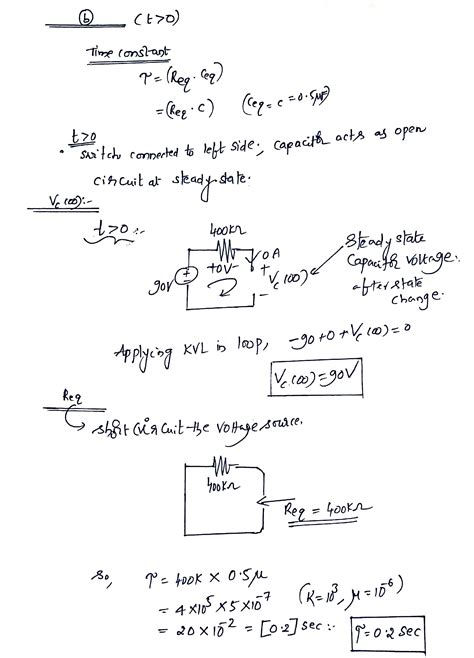 (b) (t>0)
Time constant
τ = (Req . Ceq)
= (Req . C) (Ceq = C = 0.5μF)
t>0
• switch connected to left side; capacitor acts as open
circuit at steady state.
Vc(∞):-
t>0 :-
400KΩ
+0V- 0A
90V + Vc(∞) -
Steady state
Capacitor voltage.
after state
change.
Applying KVL in loop, -90+0+Vc(∞)=0
Vc(∞)=90V
Req
short circuit the voltage source.
400KΩ
Req = 400KΩ
So, τ = 400K × 0.5μ
= 4×10⁵ × 5×10⁻⁷ (K=10³, μ=10⁻⁶)
= 20×10⁻² = [0.2] sec :- τ=0.2sec